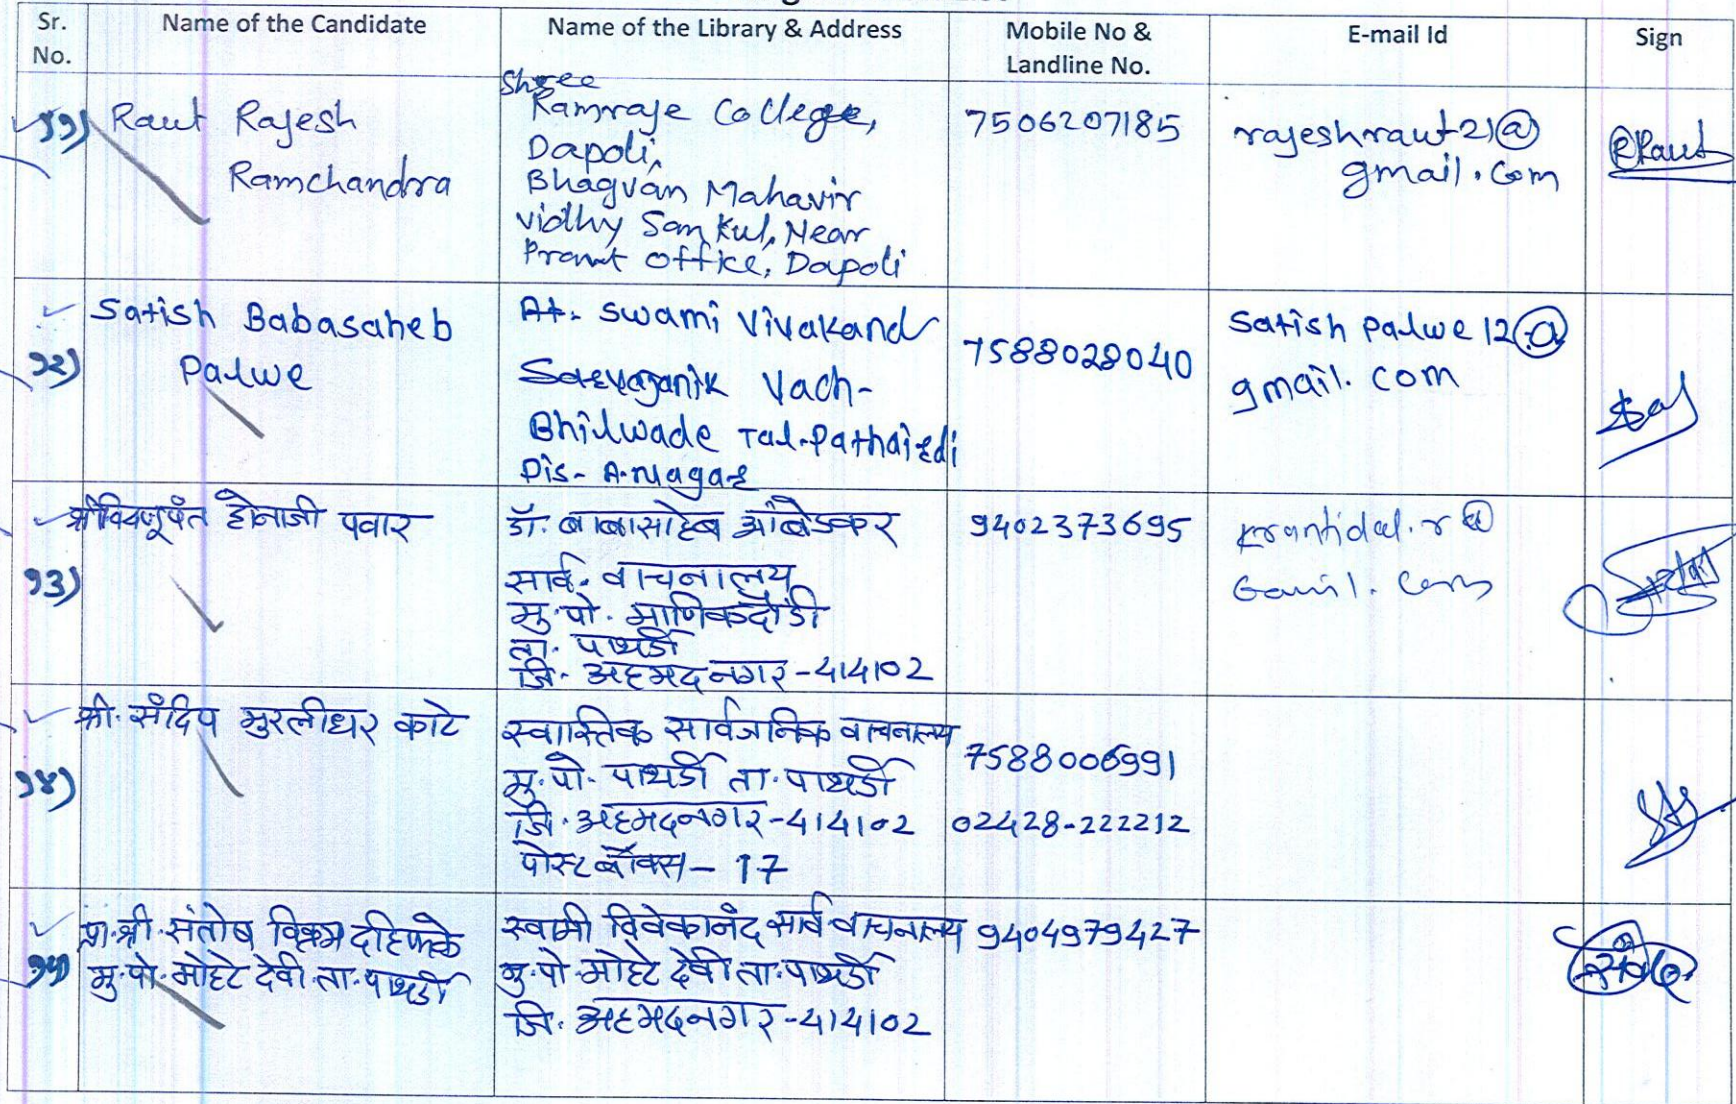 Sr. No.
Name of the Candidate
Name of the Library & Address
Mobile No & Landline No.
E-mail Id
Sign
११)
Raut Rajesh
Ramchandra
Shree
Ramraje College,
Dapoli,
Bhagvan Mahavir
vidhy Sankul, Near
Prant office, Dapoli
7506207185
rajeshraut21@
gmail.com
RRaut
१२)
Satish Babasaheb
Palwe
At- Swami Vivakand
Sarvajanik Vach-
Bhilwade Tal-Pathardi
Dis- A.nagar
7588028040
satish palwe 12@
gmail.com
१३)
श्री विष्णूपंत होनाजी पवार
डॉ. बाबासाहेब आंबेडकर
सार्व. वाचनालय
मु.पो. माणिकदौंडी
ता. पाथर्डी
जि. अहमदनगर-414102
9402373695
krantidal.r@
Gamil.com
१४)
श्री. संदिप मुरलीधर काटे
स्वास्तिक सार्वजनिक वाचनालय
मु.पो. पाथर्डी ता. पाथर्डी
जि. अहमदनगर-414102
पोस्ट बॉक्स- 17
7588006991
02428-222212
१५)
प्रा.श्री. संतोष विक्रम दहिफळे
मु.पो. मोहटे देवी ता. पाथर्डी
स्वामी विवेकानंद सार्व वाचनालय
मु.पो. मोहटे देवी ता. पाथर्डी
जि. अहमदनगर-414102
9404979427